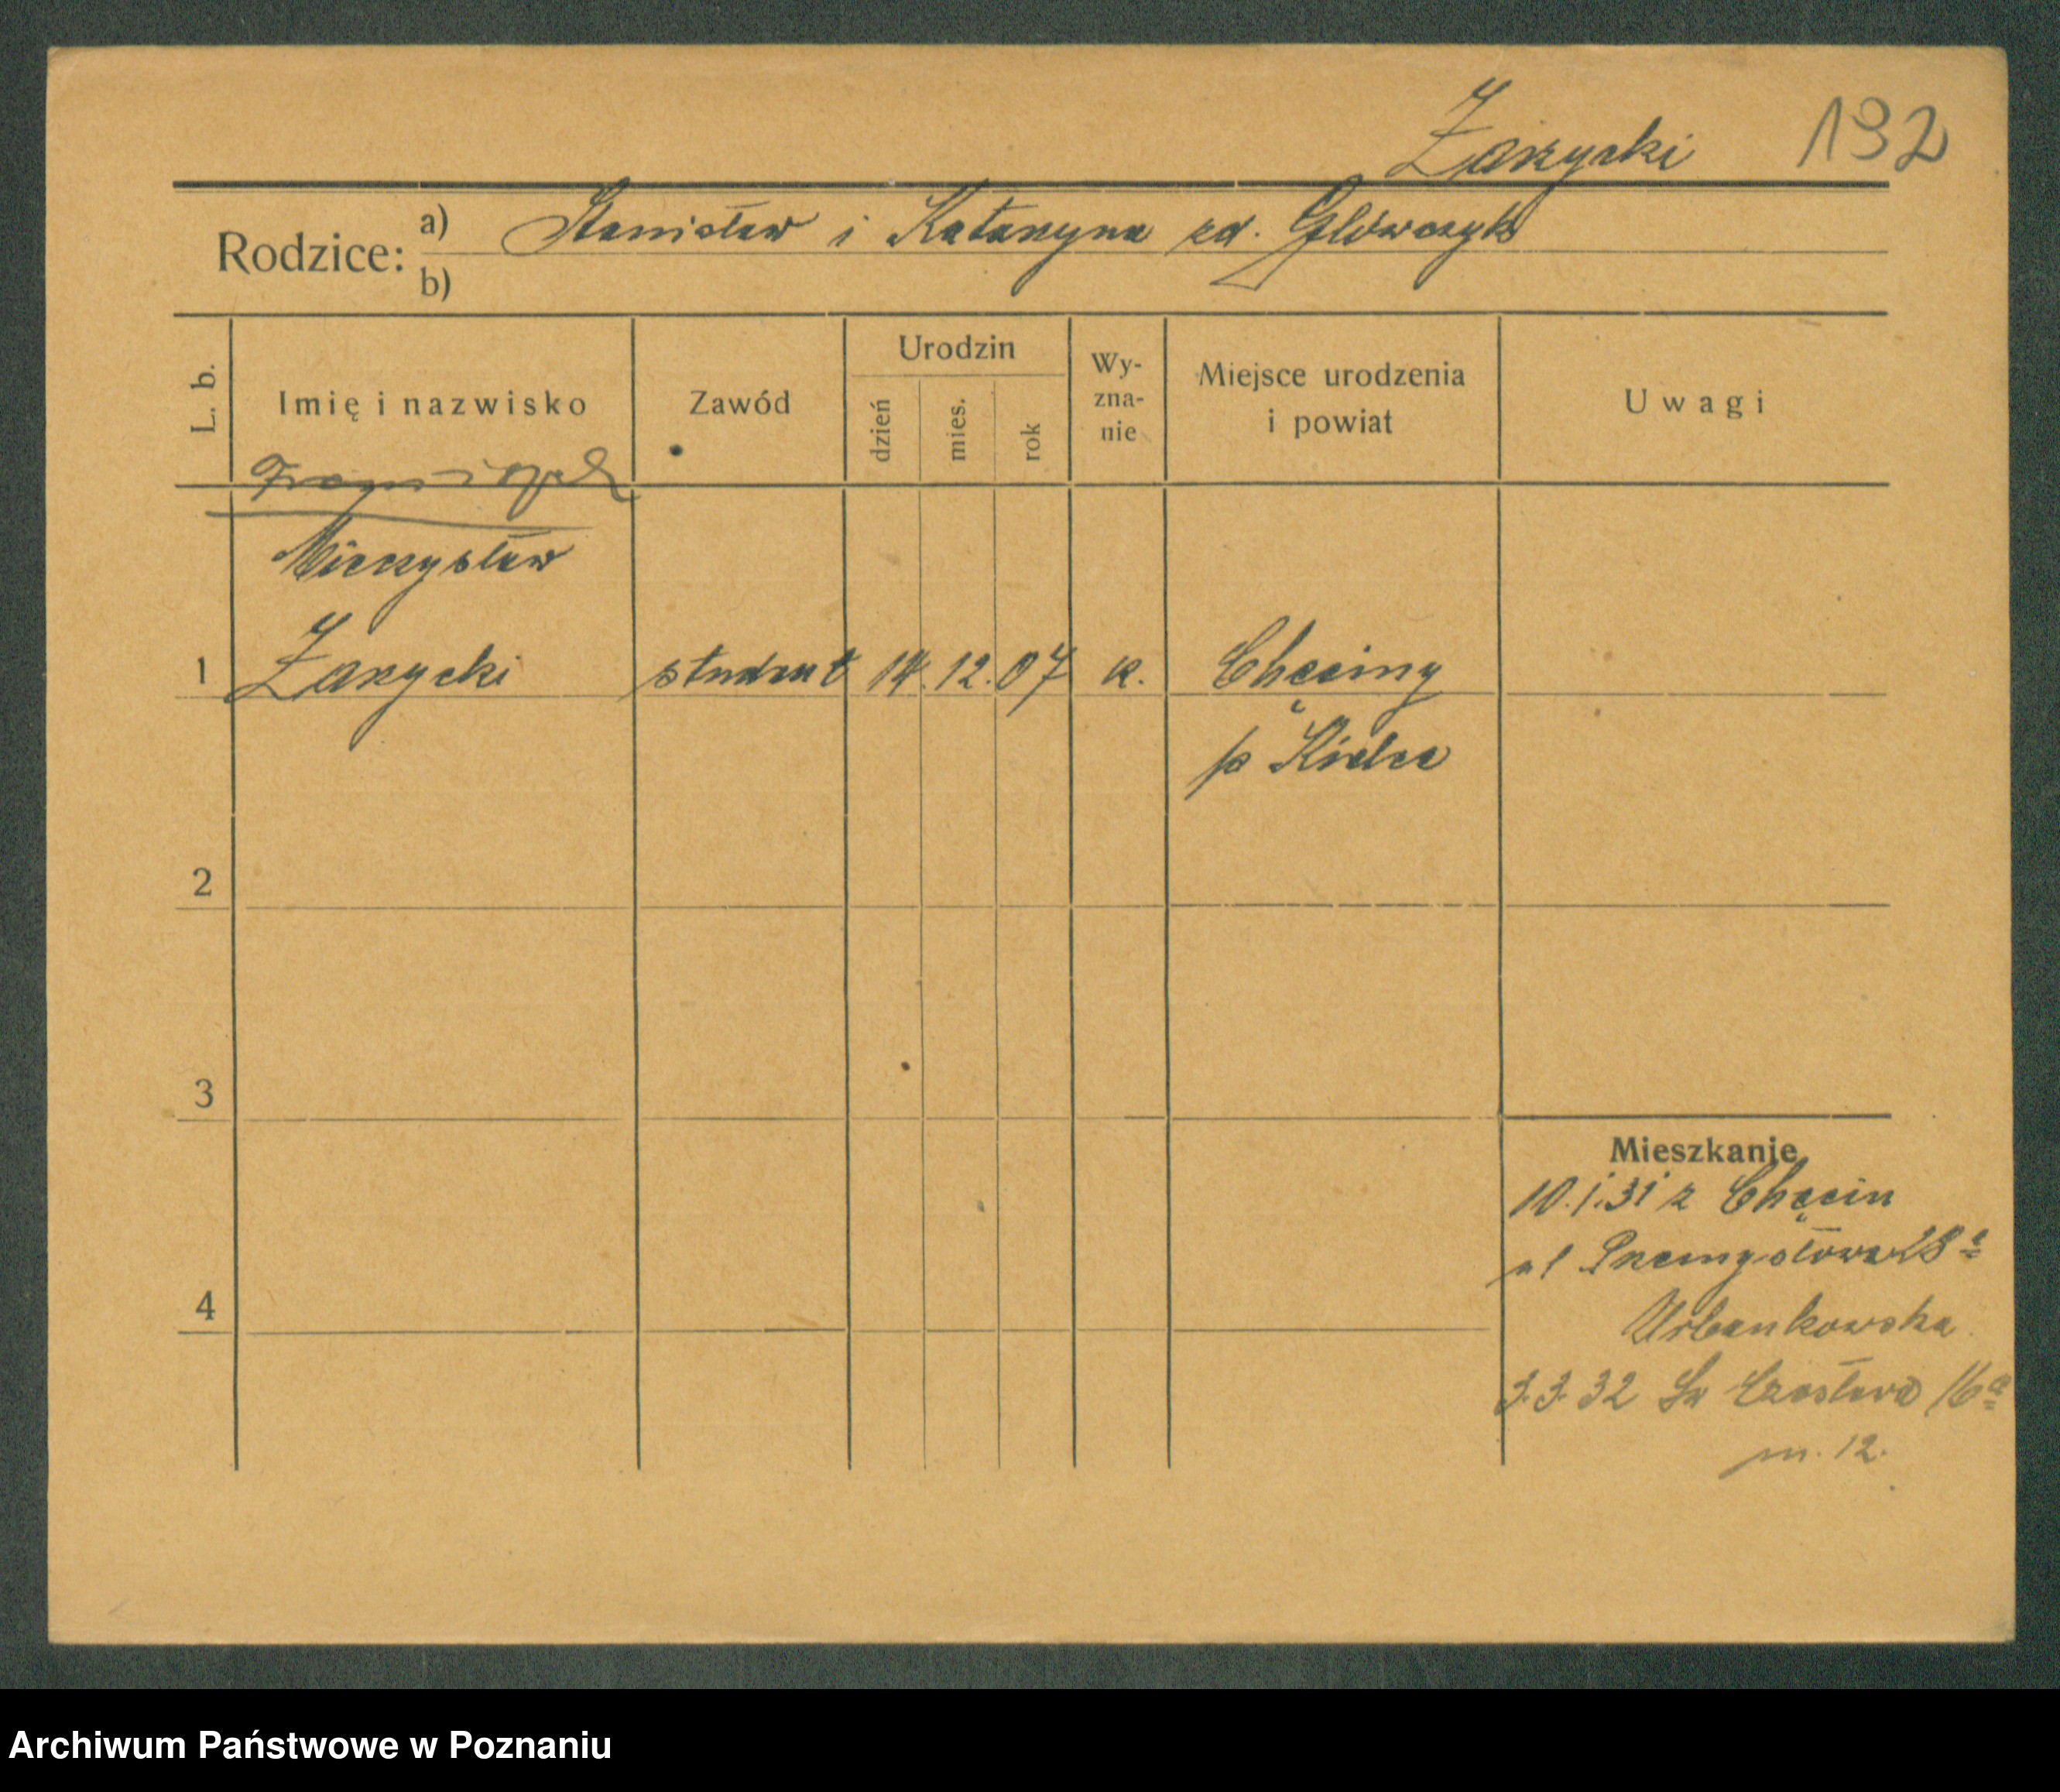 Zarzycki 192
Rodzice: a) Stanisław i Katarzyna zd. Główczyk
b)
L. b. Imię i nazwisko Zawód Urodzin dzień mies. rok Wy-zna-nie Miejsce urodzenia i powiat Uwagi
Franciszek
Mieczysław
1 Zarzycki student 14. 12. 07 k. Chęciny
p Kielce
2
3
Mieszkanie
10.1.31 z Chęcin
ul Przemysłowa 28a
4
Urbankowska
3.3.32 Św Czesława 16a
m. 12.
Archiwum Państwowe w Poznaniu